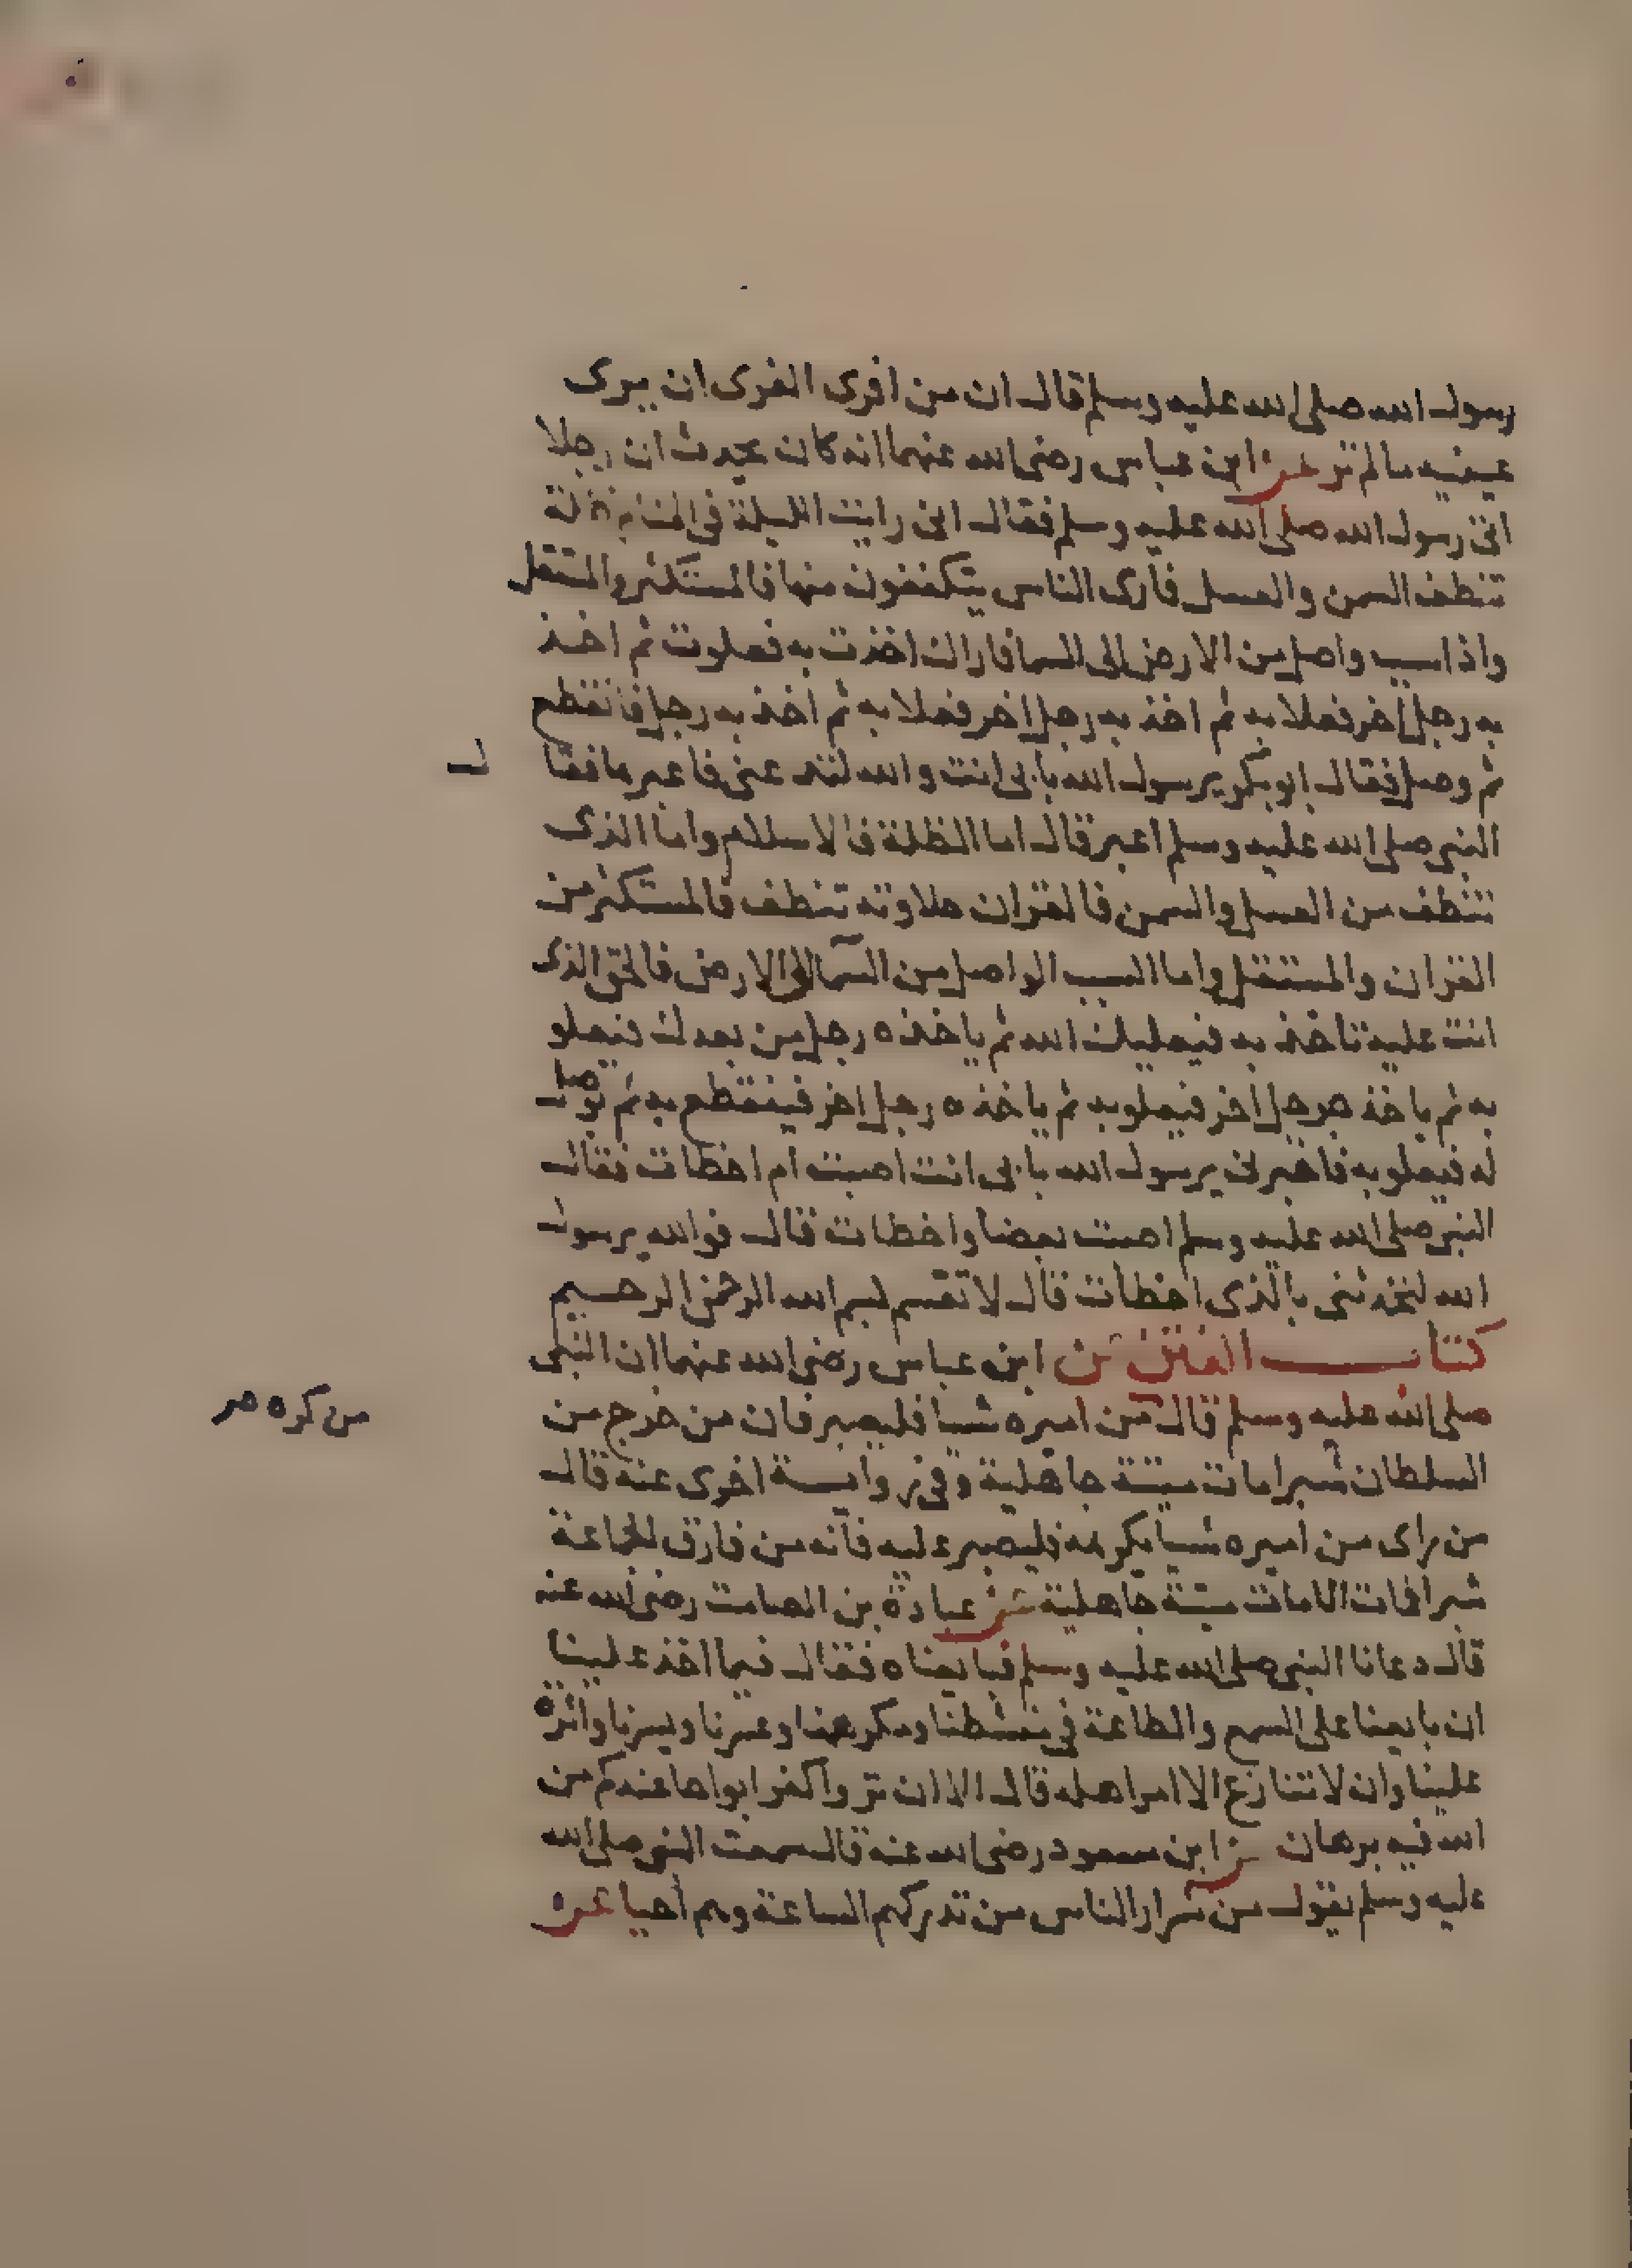 رسول الله صلى الله عليه وسلم قال ان من افرى الفرى ان يرى
عينيه ما لم تر عن ابن عباس رضى الله عنهما انه كان يحدث ان رجلا
اتى رسول الله صلى الله عليه وسلم فقال انى رايت الليلة فى المنام ظلة
تنطف السمن والعسل فارى الناس يتكففون منها فالمستكثر والمستقل
واذا سبب واصل من الارض الى السما فاراك اخذت به فعلوت ثم اخذ
به رجل اخر فعلا به ثم اخذ به رجل اخر فعلا به ثم اخذ به رجل فانقطع
ثم وصل فقال ابو بكر يرسول الله بابى انت والله لتدعنى فاعبرها فقا
ل
النبى صلى الله عليه وسلم اعبر قال اما الظلة فالاسلام واما الذى
تنطف من العسل والسمن فالقران حلاوته تنطف فالمستكثر من
القران والمستقل واما السبب الواصل من السما الى الارض فالحق الذى
انت عليه تاخذ به فيعليك الله ثم ياخذه رجل من بعدك فيعلو
به ثم ياخذ رجل اخر فيعلو به ثم ياخذه رجل اخر فينقطع به ثم يوصل
له فيعلو به فاخبرنى يرسول الله بابى انت اصبت ام اخطات فقال
النبى صلى الله عليه وسلم اصبت بعضا واخطات قال فوالله يرسول
الله لتحدثنى بالذى اخطات قال لا تقسم بسم الله الرحمن الرحيم
كتاب الفتن عن ابن عباس رضى الله عنهما ان النبى
صلى الله عليه وسلم قال من اميره شيا فليصبر فان من خرج من
من كره
السلطان شبرا مات ميتة جاهلية وفى رواية اخرى عنه قال
من راى من اميره شيا يكرهه فليصبر عليه فانه من فارق الجماعة
شبرا فمات الا مات ميتة جاهلية عن عبادة بن الصامت رضى الله عنه
قال دعانا النبى صلى الله عليه وسلم فبايعناه فقال فيما اخذ علينا
ان بايعنا على السمع والطاعة فى منشطنا ومكرهنا وعسرنا ويسرنا واثرة
علينا وان لا تنازع الامر اهله قال الا ان تروا كفرا بواحا عندكم من
الله فيه برهان عن ابن مسعود رضى الله عنه قال سمعت النبى صلى الله
عليه وسلم يقول من شرار الناس من تدركهم الساعة وهم احيا